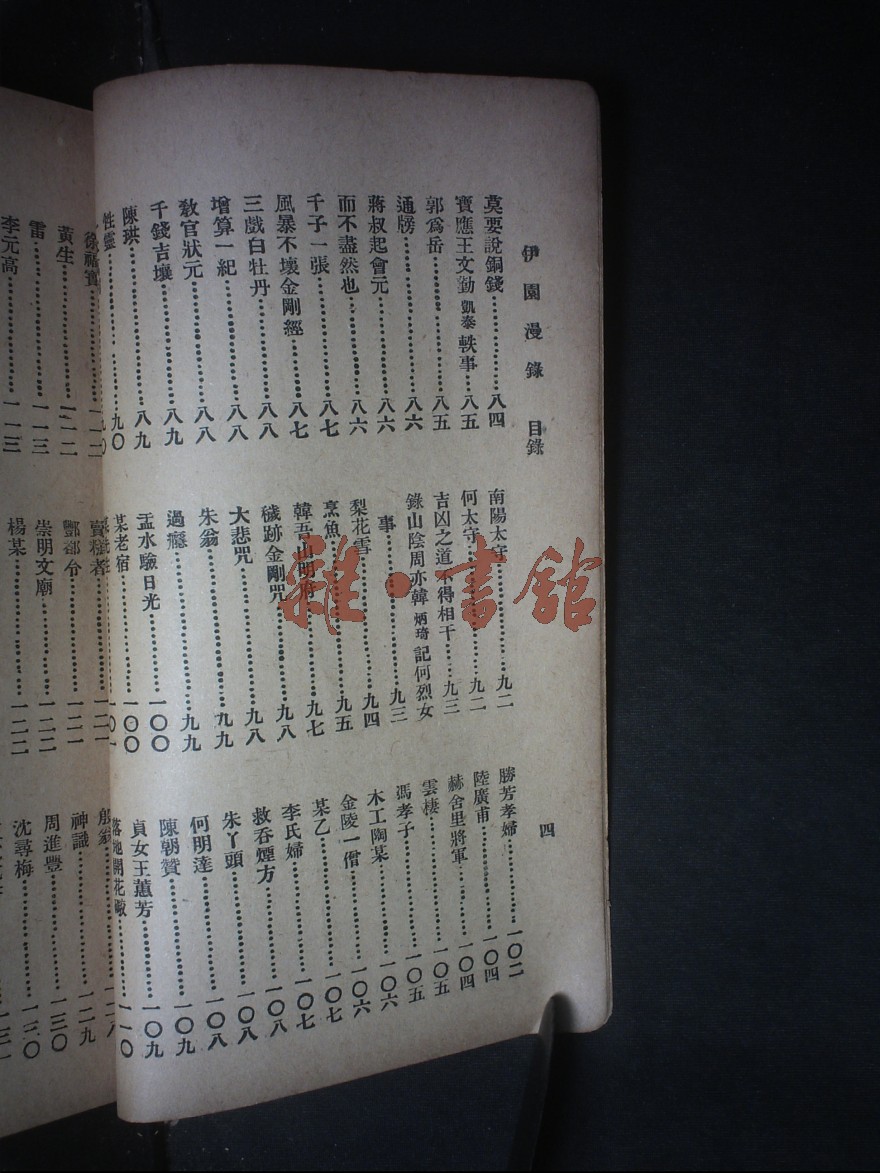 伊園漫錄 目錄 四
莫要說銅錢…………八四
寶應王文勤凱泰軼事…八五
郭爲岳…………八五
通牓…………八六
蔣叔起會元…………八六
而不盡然也…………八六
千子一張…………八七
風暴不壞金剛經…………八七
三戲白牡丹…………八八
增算一紀…………八八
教官狀元…………八八
千錢吉壤…………八九
陳珙…………八九
牲靈…………九〇
南陽太守…………九二
何太守…………九二
吉凶之道不得相干…九三
錄山陰周亦韓炳琦記何烈女
事…………九三
梨花雪…………九四
烹魚…………九五
韓吾山明府…………九七
穢跡金剛咒…………九八
大悲咒…………九八
朱翁…………九九
過癮…………九九
盂水驗日光…………一〇〇
某老宿…………一〇〇
勝芳孝婦…………一〇二
陸廣甫…………一〇四
赫舍里將軍…………一〇四
雲棲…………一〇五
馮孝子…………一〇五
木工陶某…………一〇六
金陵一僧…………一〇六
某乙…………一〇七
李氏婦…………一〇七
救吞煙方…………一〇八
朱丫頭…………一〇八
何明達…………一〇八
陳朝贊…………一〇九
貞女王蕙芳…………一〇九
落地開花𤲞…………一一〇
黃生…………一一二
雷…………一一三
李元高…………一一三
酆都令…………一二一
崇明文廟…………一二二
楊某…………一二二
神識…………一二九
周進豐…………一三〇
沈尋梅…………一三〇
雜·書館